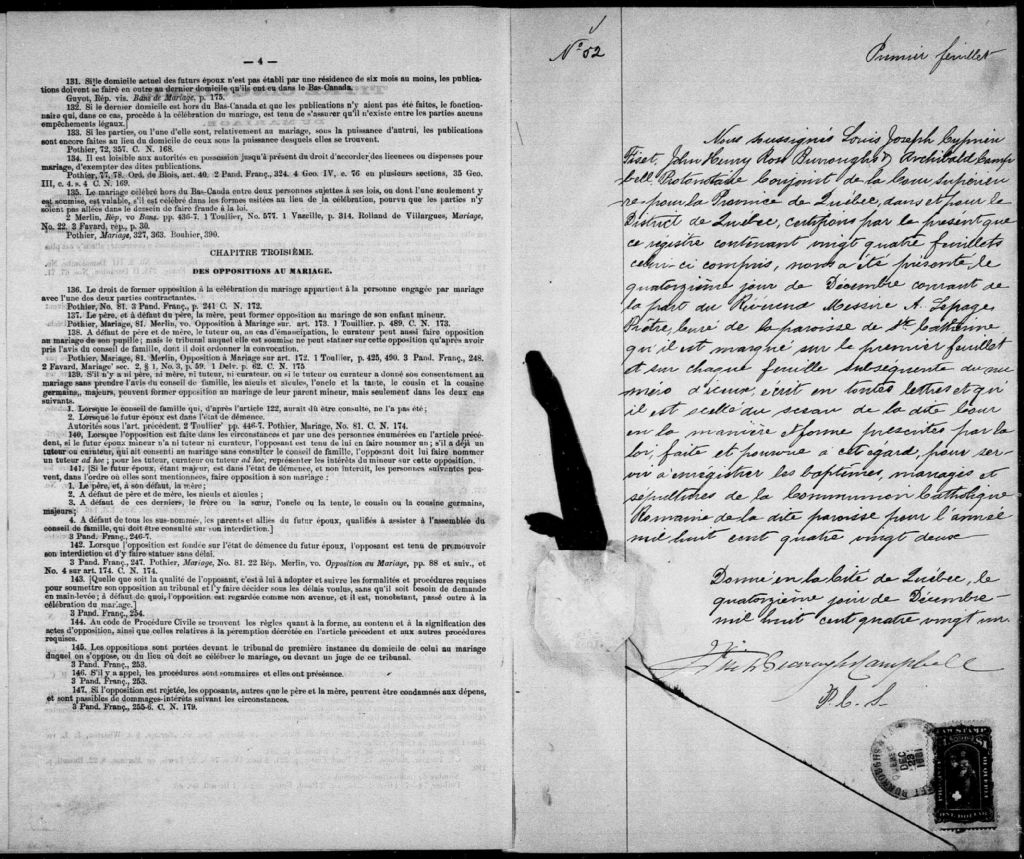 — 4 —
131. Si le domicile actuel des futurs époux n'est pas établi par une résidence de six mois au moins, les publications doivent se faire en outre au dernier domicile qu'ils ont eu dans le Bas-Canada.
Guyot, Rép. vis. Bans de Mariage, p. 175.
132. Si le dernier domicile est hors du Bas-Canada et que les publications n'y aient pas été faites, le fonctionnaire qui, dans ce cas, procède à la célébration du mariage, est tenu de s'assurer qu'il n'existe entre les parties aucuns empêchements légaux.]
133. Si les parties, ou l'une d'elle sont, relativement au mariage, sous la puissance d'autrui, les publications sont encore faites au lieu du domicile de ceux sous la puissance desquels elles se trouvent.
Pothier, 72, 357. C. N. 168.
134. Il est loisible aux autorités en possession jusqu'à présent du droit d'accorder des licences ou dispenses pour mariage, d'exempter des dites publications.
Pothier, 77, 78. Ord. de Blois, art. 40. 2 Pand. Franç., 324. 4 Geo. IV, c. 76 en plusieurs sections, 35 Geo. III, c. 4. s. 4 C. N. 169.
135. Le mariage célébré hors du Bas-Canada entre deux personnes sujettes à ses lois, ou dont l'une seulement y est soumise, est valable, s'il est célébré dans les formes usitées au lieu de la célébration, pourvu que les parties n'y soient pas allées dans le dessein de faire fraude à la loi.
2 Merlin, Rép, vo Bans. pp. 436-7. 1 Toullier, No. 577. 1 Vazeille, p. 314. Rolland de Villargues, Mariage, No. 22. 3 Favard, rép., p. 30.
Pothier, Mariage, 327, 363. Bouhier, 390.
CHAPITRE TROISIÈME.
DES OPPOSITIONS AU MARIAGE.
136. Le droit de former opposition à la célébration du mariage appartient à la personne engagée par mariage avec l'une des deux parties contractantes.
Pothier, No. 81. 3 Pand. Franç., p. 241 C. N. 172.
137. Le père, et à défaut du père, la mère, peut former opposition au mariage de son enfant mineur.
Pothier, Mariage, 81. Merlin, vo. Opposition à Mariage sur. art. 173. 1 Toullier, p. 489. C. N. 173.
138. A défaut de père et de mère, le tuteur ou, an cas d'émancipation, le curateur peut aussi faire opposition au mariage de son pupille; mais le tribunal auquel elle est soumise ne peut statuer sur cette opposition qu'après avoir pris l'avis du conseil de famille, dont il doit ordonner la convocation.
Pothier, Mariage, 81. Merlin, Opposition à Mariage sur art. 172. 1 Toullier, p. 425, 490. 3 Pand. Franç., 248. 2 Favard, Mariage' sec. 2, § 1, No. 3, p. 59. 1 Delv. p. 62. C. N. 175
139. S'il n'y a ni père, ni mère, ni tuteur, ni curateur, ou si le tuteur ou curateur a donné son consentement au mariage sans prendre l'avis du conseil de famille, les aïeuls et aïeules, l'oncle et la tante, le cousin et la cousine germains, majeurs, peuvent former opposition au mariage de leur parent mineur, mais seulement dans les deux cas suivants.
1. Lorsque le conseil de famille qui, d'après l'article 122, aurait dû être consulté, ne l'a pas été;
2. Lorsque le futur époux est dans l'état de démence.
Autorités sous l'art. précédent. 2 Toullier' pp. 446-7. Pothier, Mariage, No. 81. C. N. 174.
140. Lorsque l'opposition est faite dans les circonstances et par une des personnes énumérées en l'article précédent, si le futur époux mineur n'a ni tuteur ni curateur, l'opposant est tenu de lui en faire nommer un; s'il a déjà un tuteur ou curateur, qui ait consenti au mariage sans consulter le conseil de famille, l'opposant doit lui faire nommer un tuteur ad hoc; pour les tuteur, curateur ou tuteur ad hoc, représenter les intérêts du mineur sur cette opposition.
141. [Si le futur époux, étant majeur, est dans l'état de démence, et non interdit, les personnes suivantes peuvent, dans l'ordre où elles sont mentionnées, faire opposition à son mariage:
1. Le père, et, à son défaut, la mère;
2. A défaut de père et de mère, les aïeuls et aïeules;
3. A défaut de ces derniers, le frère ou la sœur, l'oncle ou la tente, le cousin ou la cousine germains, majeurs;
4. A défaut de tous les sus-nommés, les parents et alliés du futur époux, qualifiés à assister à l'assemblée du conseil de famille, qui doit être consulté sur son interdiction.]
3 Pand. Franç., 246-7.
142. Lorsque l'opposition est fondée sur l'état de démence du futur époux, l'opposant est tenu de promouvoir son interdiction et d'y faire statuer sans délai.
3 Pand. Franç., 247. Pothier, Mariage, No. 81. 22 Rép. Merlin, vo. Opposition au Mariage, pp. 88 et suiv., et No. 4 sur art. 174. C. N. 174.
143. [Quelle que soit la qualité de l'opposant, c'est à lui à adopter et suivre les formalités et procédures requises pour soumettre son opposition au tribunal et l'y faire décider sous les délais voulus, sans qu'il soit besoin de demande en main-levée; à défaut de quoi, l'opposition est regardée comme non avenue, et il est, nonobstant, passé outre à la célébration du mariage.]
3 Pand. Franç., 254.
144. Au code de Procédure Civile se trouvent les règles quant à la forme, au contenu et à la signification des actes d'opposition, ainsi que celles relatives à la péremption décrétée en l'article précédent et aux autres procédures requises.
145. Les oppositions sont portées devant le tribunal de première instance du domicile de celui au mariage duquel on s'oppose, ou du lieu où doit se célébrer le mariage, ou devant un juge de ce tribunal.
3 Pand. Franç., 253.
146. S'il y a appel, les procédures sont sommaires et elles ont préséance.
3 Pand. Franç., 253.
147. Si l'opposition est rejetée, les opposants, autres que le père et la mère, peuvent être condamnés aux dépens, et sont passibles de dommages-intérêts suivant les circonstances.
3 Pand. Franç., 255-6. C. N. 179.
No 52
Premier feuillet
Nous soussignés Louis Joseph Cyprien
Fiset, John Henry Ross Burroughs & Archibald Camp
bell Protonotaire Conjoint de la Cour Supérieu
re pour la Province de Québec, dans et pour le
District de Québec, certifions par le présent que
ce régistre contenant vingt quatre feuillets
celui-ci compris, nous a été présenté le
quatorzième jour de Décembre courant de
la part du Révérend Messire A. Lepage
Prêtre, Curé de la paroisse de Ste Catherine
qu'il est marqué sur le premier feuillet
et sur chaque feuille subséquente du nu
méro d'iceux, écrit en toutes lettres et qu'
il est scellé du sceau de la dite Cour
en la manière et forme prescrites par la
loi, faite et pourvue à cet égard, pour ser-
vir à enrégistrer les baptêmes, mariages et
sépultures de la Communion Catholique
Romaine de la dite paroisse pour l'année
mil huit cent quatre vingt deux
Donné en la Cité de Québec, le
quatorzième jour de Décembre
mil huit cent quatre vingt un.
Fiset Burroughs Campbell
P. C. S.
FISET BURROUGHS &
QUEBEC
DEC
23
1881
LAW STAMP
$1
ONE DOLLAR